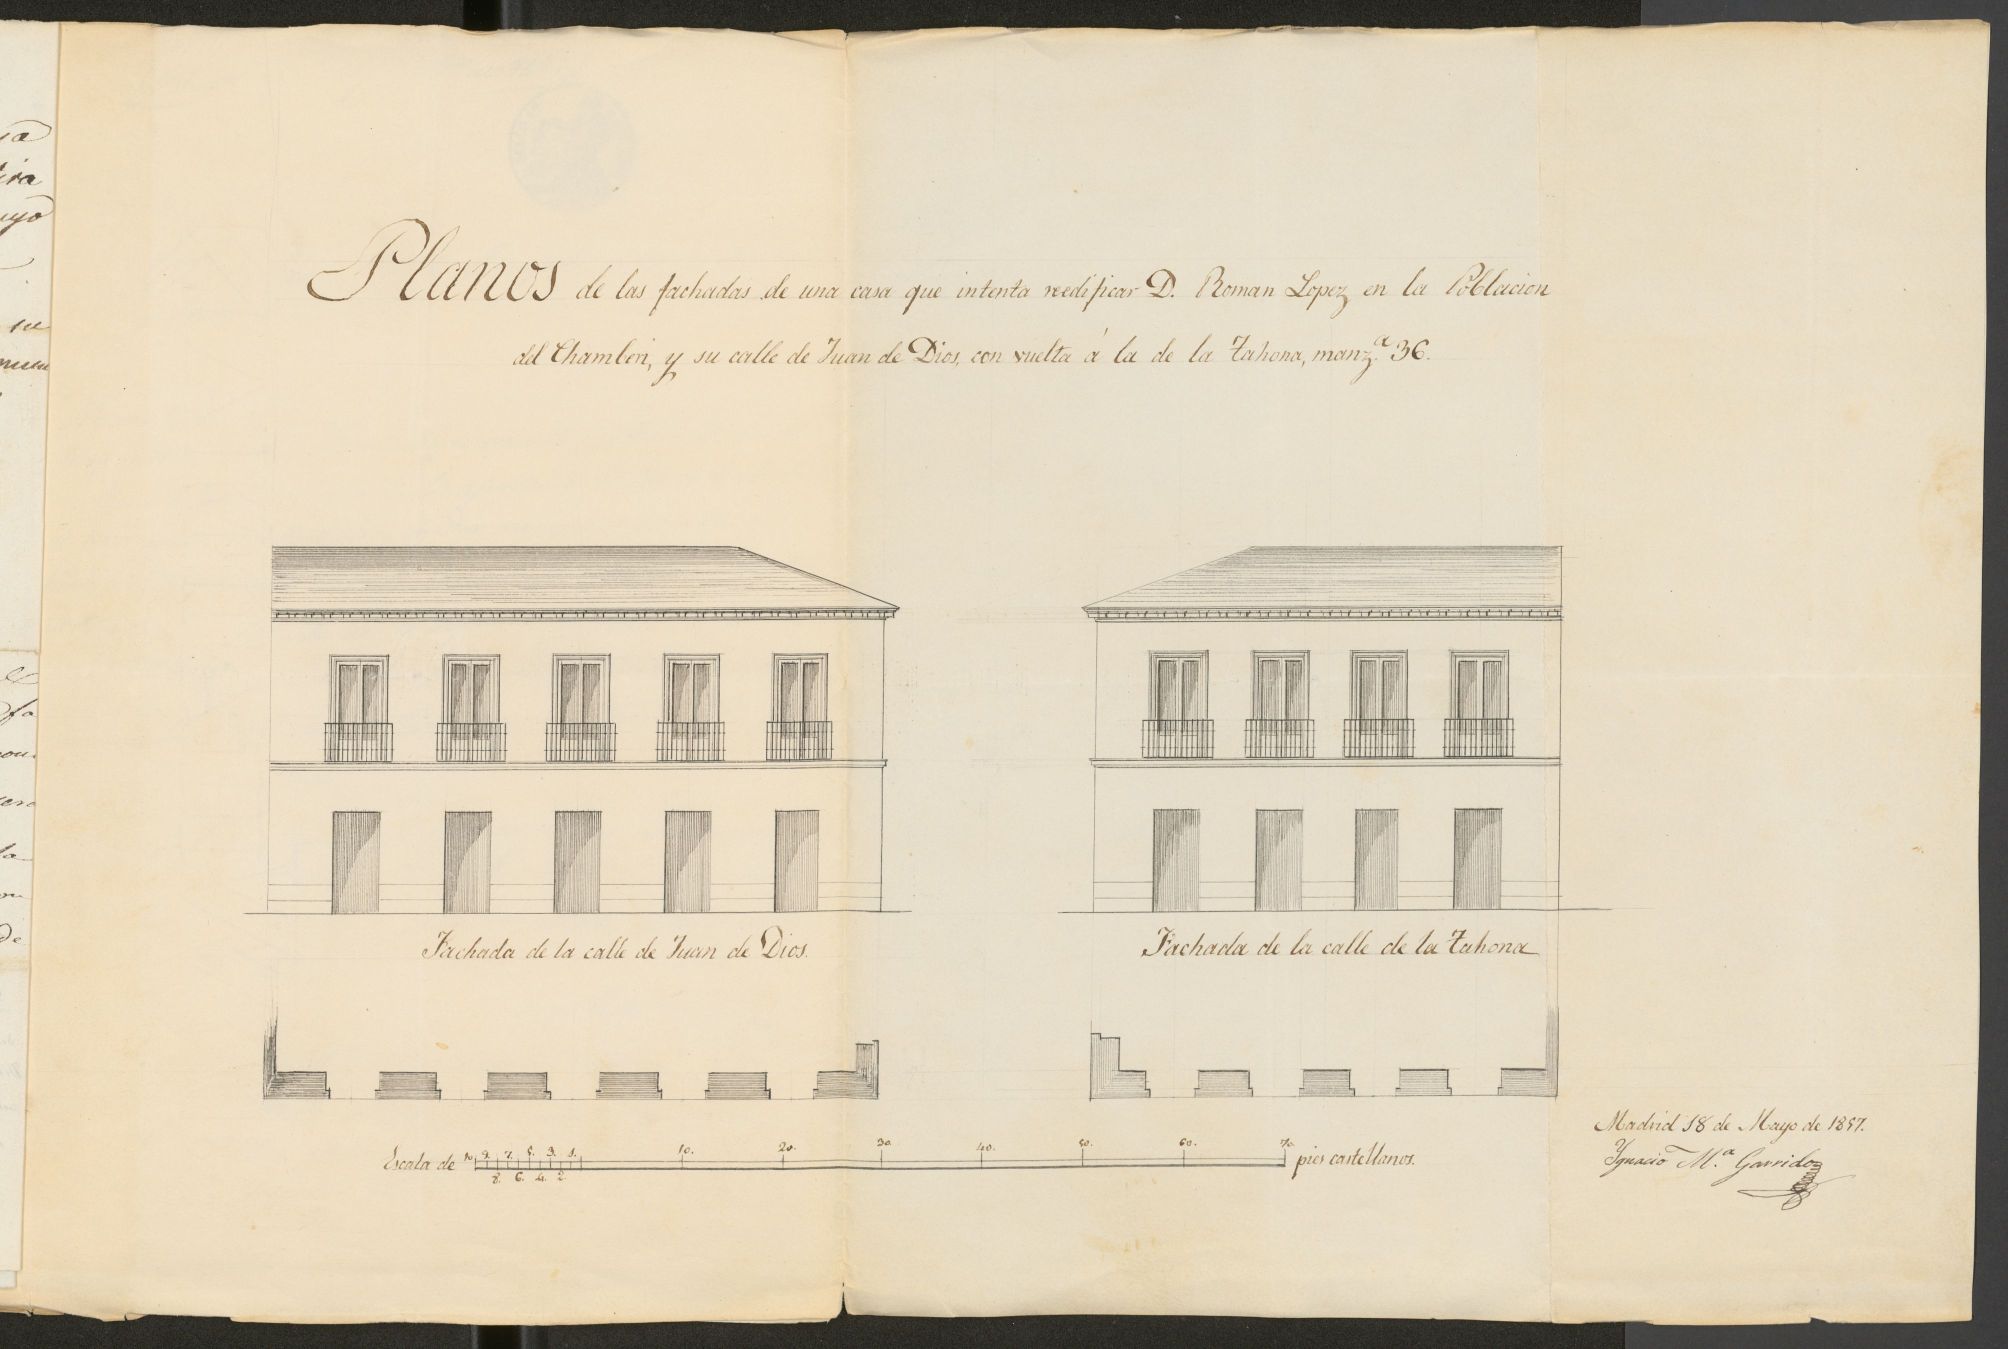 Planos de las fachadas de una casa que intenta reedificar D. Roman Lopez en la Poblacion
del Chamberi, y su calle de Juan de Dios, con vuelta á la de la Tahona, manz.ª 36.
Fachada de la calle de Juan de Dios.
Fachada de la calle de la Tahona
Escala de 10 9. 8. 7. 6. 5. 4. 3. 2. 1. 10. 20. 30 40. 50. 60. 70 pies castellanos.
Madrid 18 de Mayo de 1857.
Ygnacio M.ª Garrido
su
de